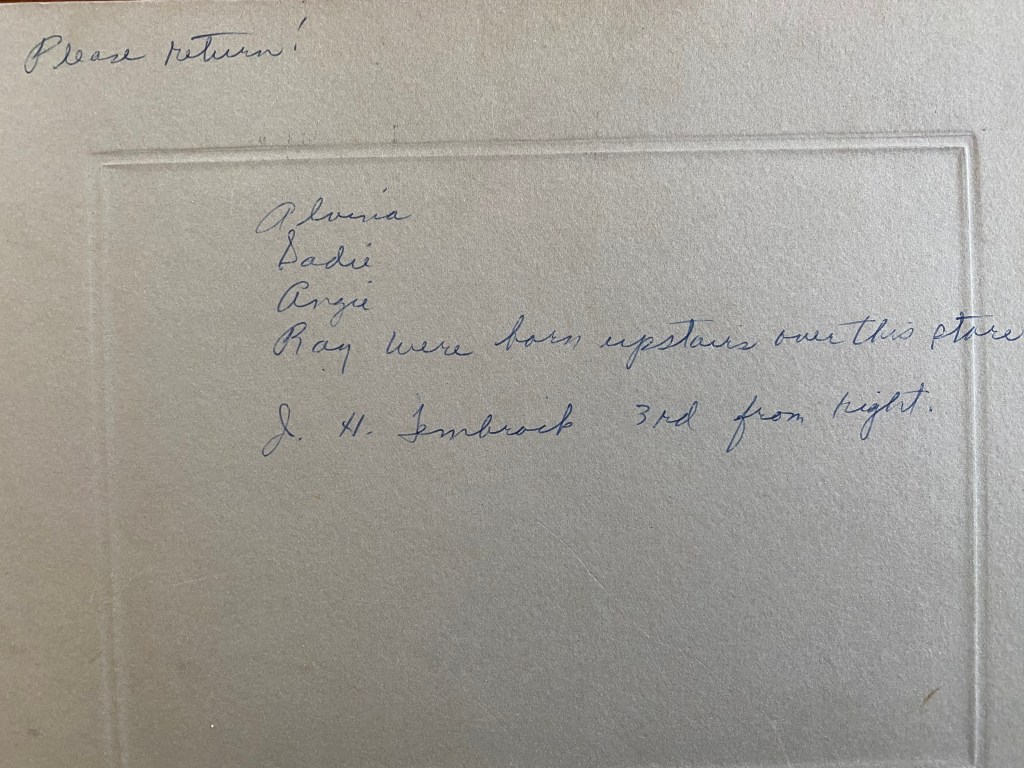 Please return!
Alvina
Sadie
Angie
Ray were born upstairs over this store
J. H. Tembrock 3rd from right.